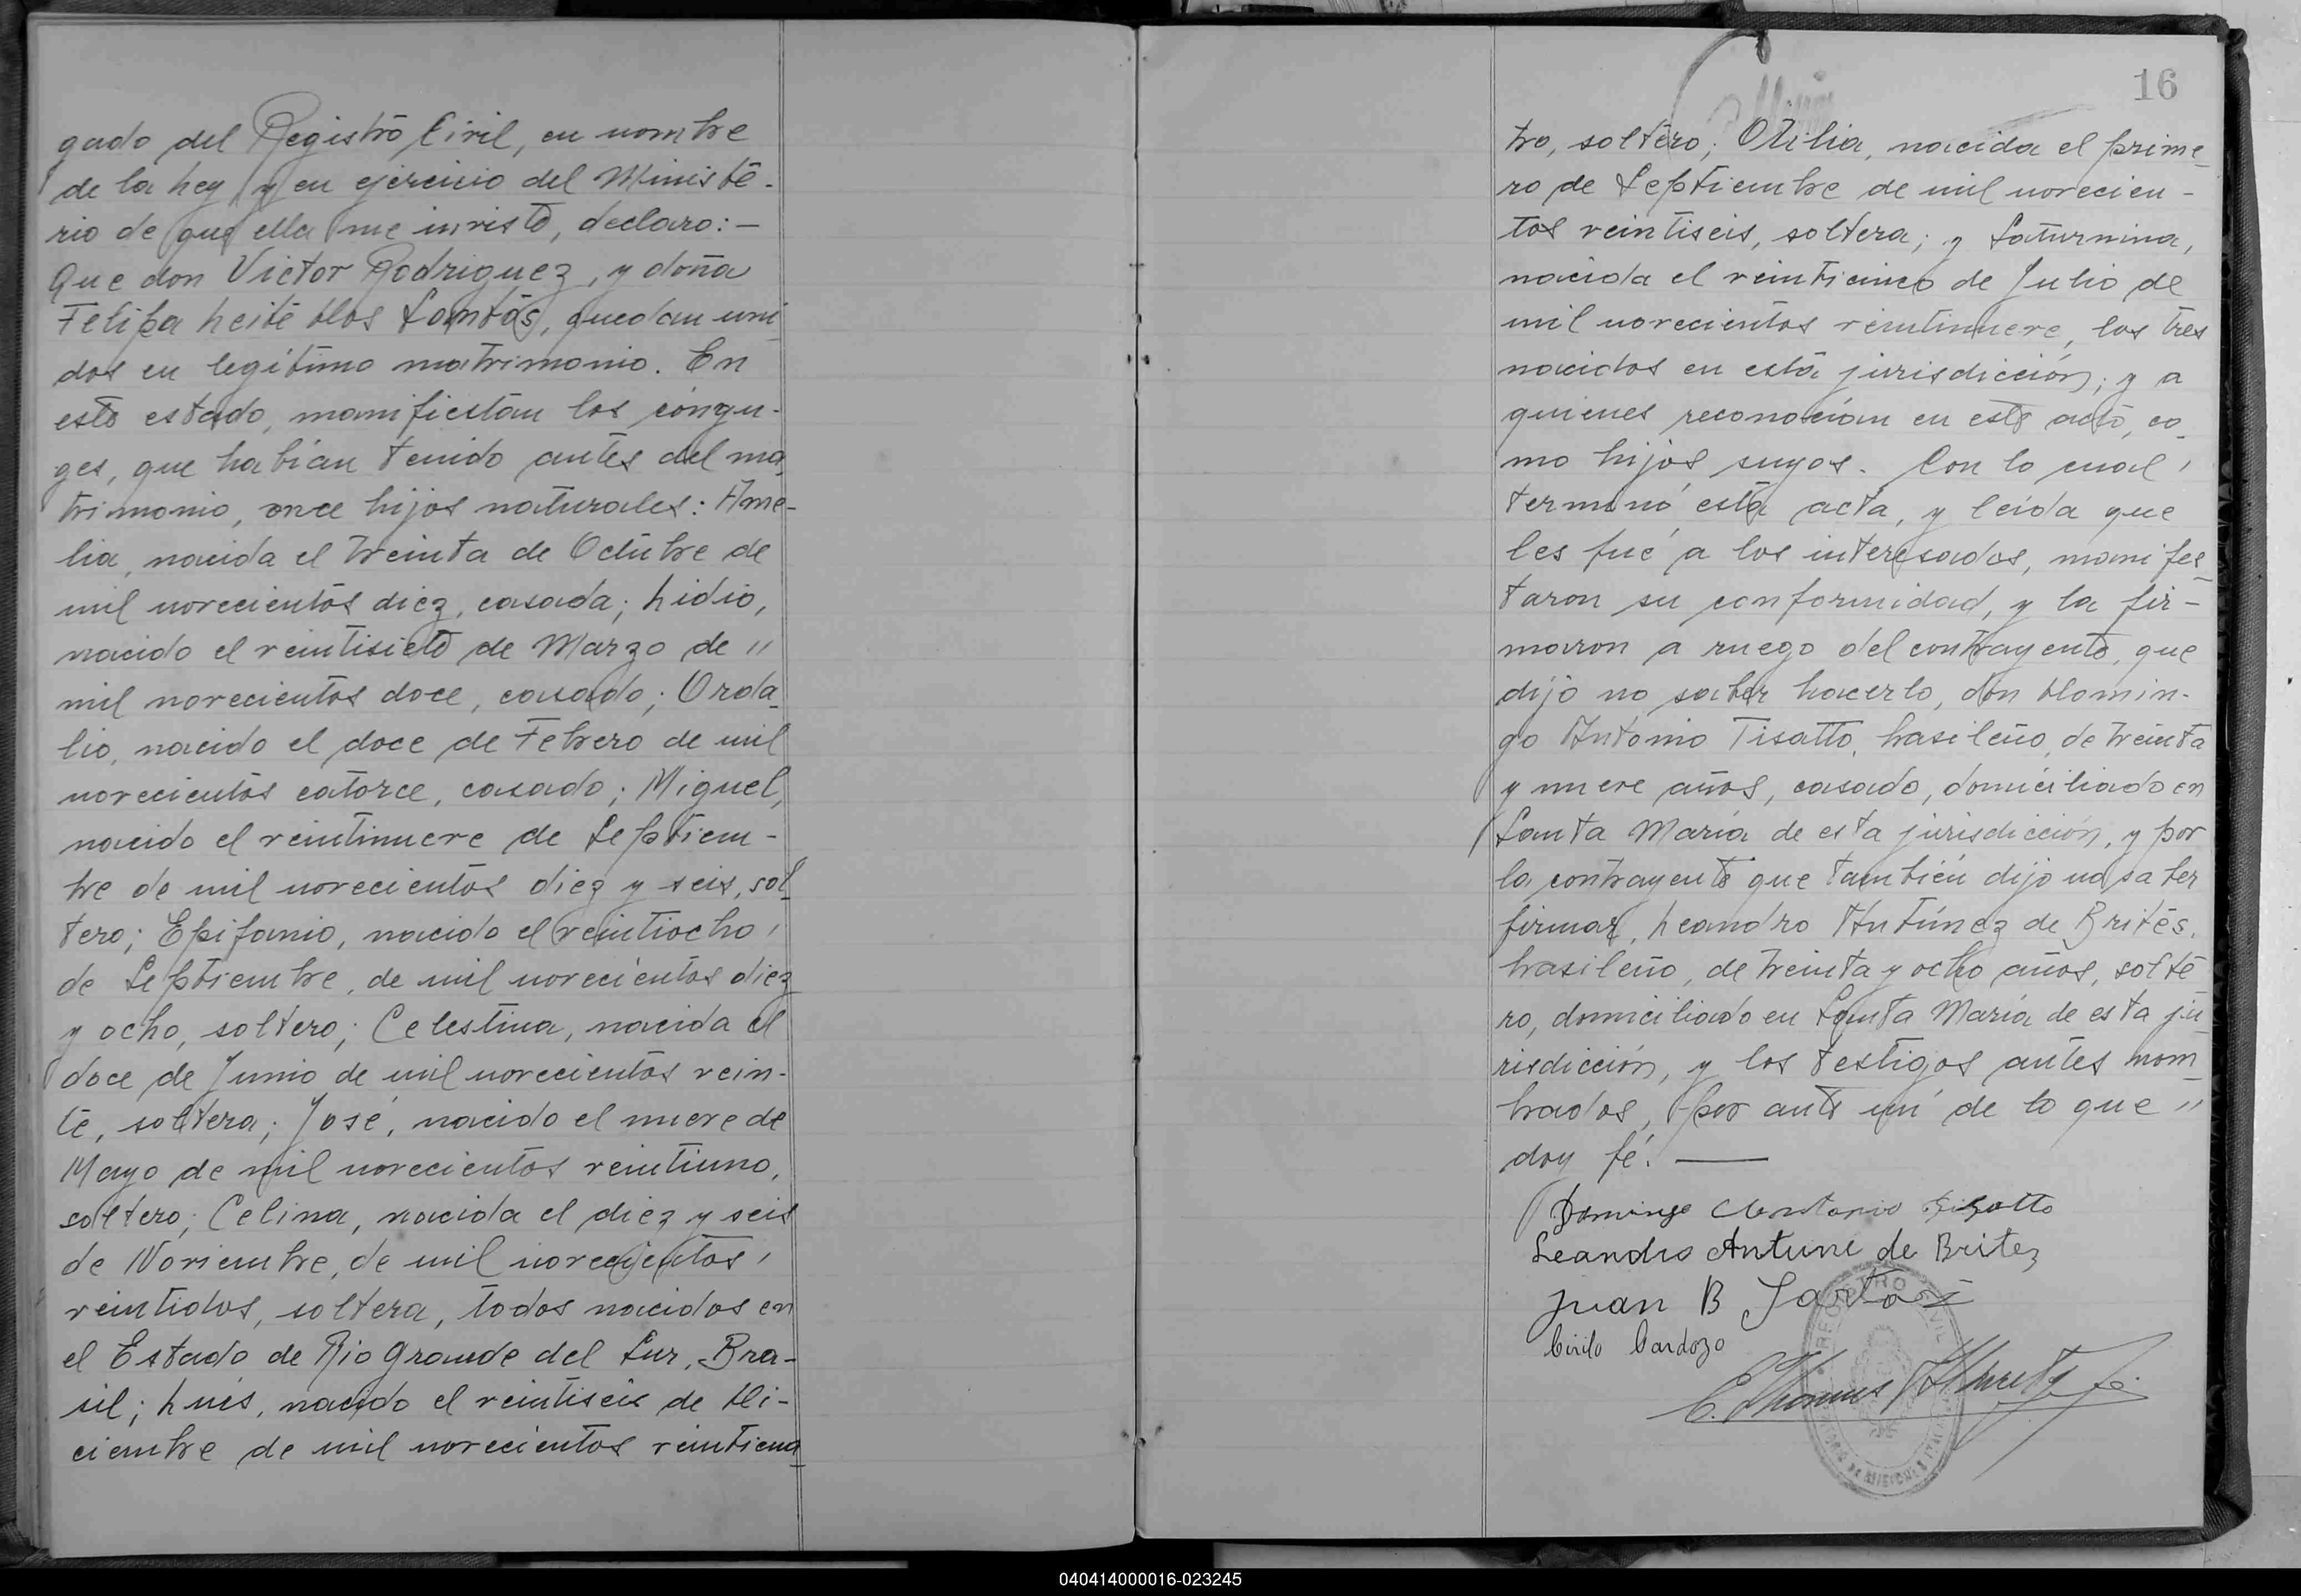 gado del Registro Civil, en nombre
de la Ley y en ejercicio del Ministe-
rio de que ella me inviste, declaro:-
Que don Victor Rodriguez, y doña
Felipa Leite dos Santos, quedan uni-
dos en legítimo matrimonio. En
este estado, manifiestan los cónyu-
ges, que habían tenido antes del ma-
trimonio, once hijos naturales: Ame-
lia, nacida el treinta de Octubre de
mil novecientos diez, casada; Lidio,
nacido el veintisiete de Marzo de "
mil novecientos doce, casado; Orda-
lio, nacido el doce de Febrero de mil
novecientos catorce, casado; Miguel,
nacido el veintinueve de Septiem-
bre de mil novecientos diez y seis, sol-
tero; Epifanio, nacido el veintiocho,
de Septiembre, de mil novecientos diez
y ocho, soltero; Celestina, nacida el
doce de Junio de mil novecientos vein-
te, soltera; José, nacido el nueve de
Mayo de mil novecientos veintiuno,
soltero; Celina, nacida el diez y seis
de Noviembre, de mil novecientos,
veintidos, soltera, todos nacidos en
el Estado de Rio Grande del Sur, Bra-
sil; Luis, nacido el veintiseis de Di-
ciembre de mil novecientos veinticua-
16
tro, soltero; Otilia, nacida el prime-
ro de Septiembre de mil novecien-
tos veintiseis, soltera; y Saturnina,
nacida el veinticinco de Julio de
mil novecientos veintinueve, los tres
nacidos en esta jurisdicción; y a
quienes reconocían en este acto, co-
mo hijos suyos. Con lo cual,
terminó esta acta, y leída que
les fué a los interesados, manifes-
taron su conformidad, y la fir-
maron a ruego del contrayente, que
dijo no saber hacerlo, don Domin-
go Antonio Tisatto, brasileño, de treinta
y nueve años, casado, domiciliado en
Santa María de esta jurisdicción, y por
la contrayente que también dijo no saber
firmar, Leandro Antúnez de Brites,
brasileño, de treinta y ocho años, solte-
ro, domiciliado en Santa María de esta ju-
risdicción, y los testigos antes nom-
brados, por ante mí de lo que "
doy fé. —
Domingo Antonio Tisatto
Leandro Antune de Britez
Juan B
Cirilo Cardozo
REGISTRO CIVIL
040414000016-023245